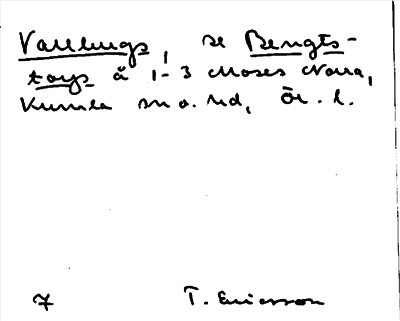 Vallbergs, se Bengts-
torp å 1-3 Mosas Norra,
Kumla sn o. hd, Ör. l.
7 T. Ericsson